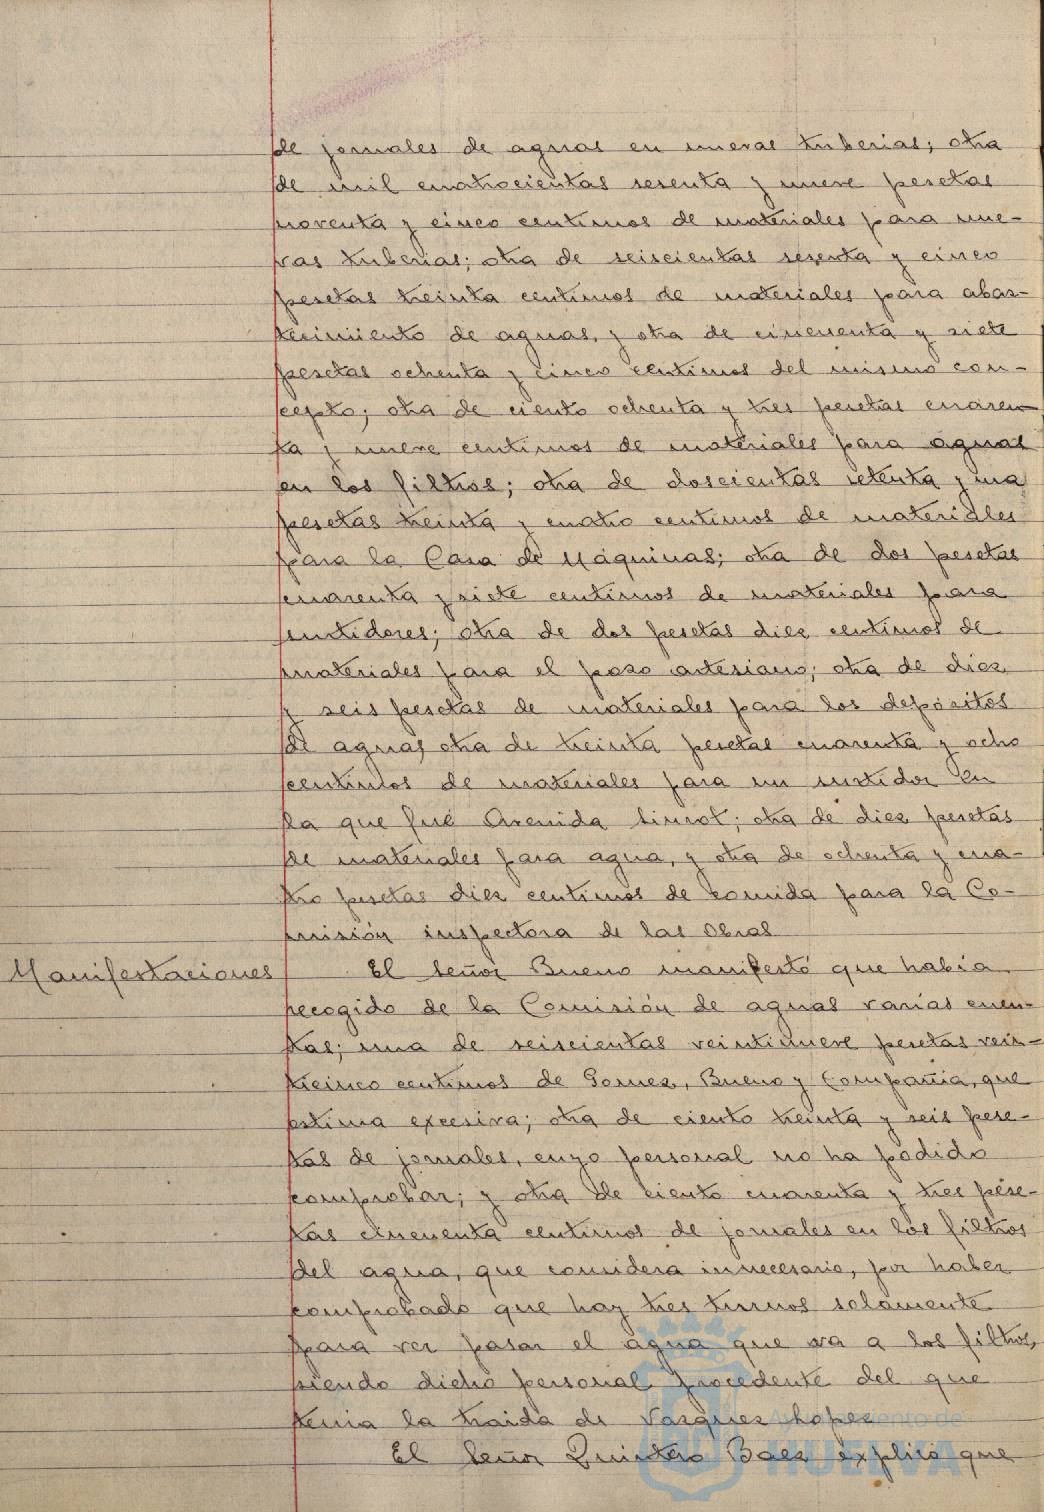 de jornales de aguas en nuevas tuberias; otra
de mil cuatrocientas sesenta y nueve pesetas
noventa y cinco centimos de materiales para nue-
vas tuberias; otra de seiscientas sesenta y cinco
pesetas treinta centimos de materiales para abas-
tecimiento de aguas, y otra de cincuenta y siete
pesetas ochenta y cinco centimos del mismo con-
cepto; otra de ciento ochenta y tres pesetas cuaren-
ta y nueve centimos de materiales para aguas
en los filtros; otra de doscientas setenta y una
pesetas treinta y cuatro centimos de materiales
para la Casa de Máquinas; otra de dos pesetas
cuarenta y siete centimos de materiales para
surtidores; otra de dos pesetas diez centimos de
materiales para el pozo artesiano; otra de diez
y seis pesetas de materiales para los depósitos
de aguas otra de treinta pesetas cuarenta y ocho
centimos de materiales para un surtidor en
la que fué Avenida Siurot; otra de diez pesetas
de materiales para agua, y otra de ochenta y cua-
tro pesetas diez centimos de comida para la Co-
misión inspectora de las Obras
Manifestaciones
El Señor Bueno manifestó que había
recogido de la Comisión de aguas varias cuen-
tas; una de seiscientas veintinueve pesetas vein-
ticinco centimos de Gomez, Bueno y Compañia, que
estima excesiva; otra de ciento treinta y seis pese-
tas de jornales, cuyo personal no ha podido
comprobar; y otra de ciento cuarenta y tres pese-
tas cincuenta centimos de jornales en los filtros
del agua, que considera innecesario, por haber
comprobado que hay tres turnos solamente
para ver pasar el agua que va a los filtros,
siendo dicho personal procedente del que
tenia la traida de Vazquez Lopez
El Señor Quintero Baez explicó que
Ayuntamiento de
HUELVA